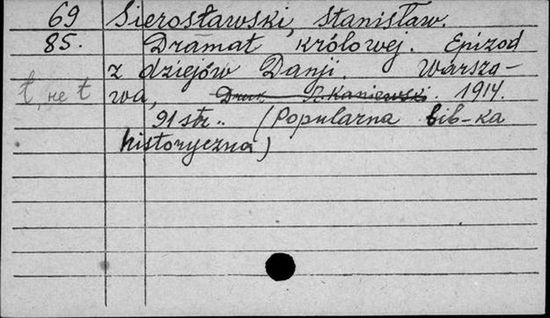 69 Sierosławski, Stanisław.
85. Dramat królowej. Epizod
z dziejów Danji. Warsza-
ł, не t wa, Druk P. Kaniewski. 1914.
91 str. (Popularna bib-ka
historyczna)